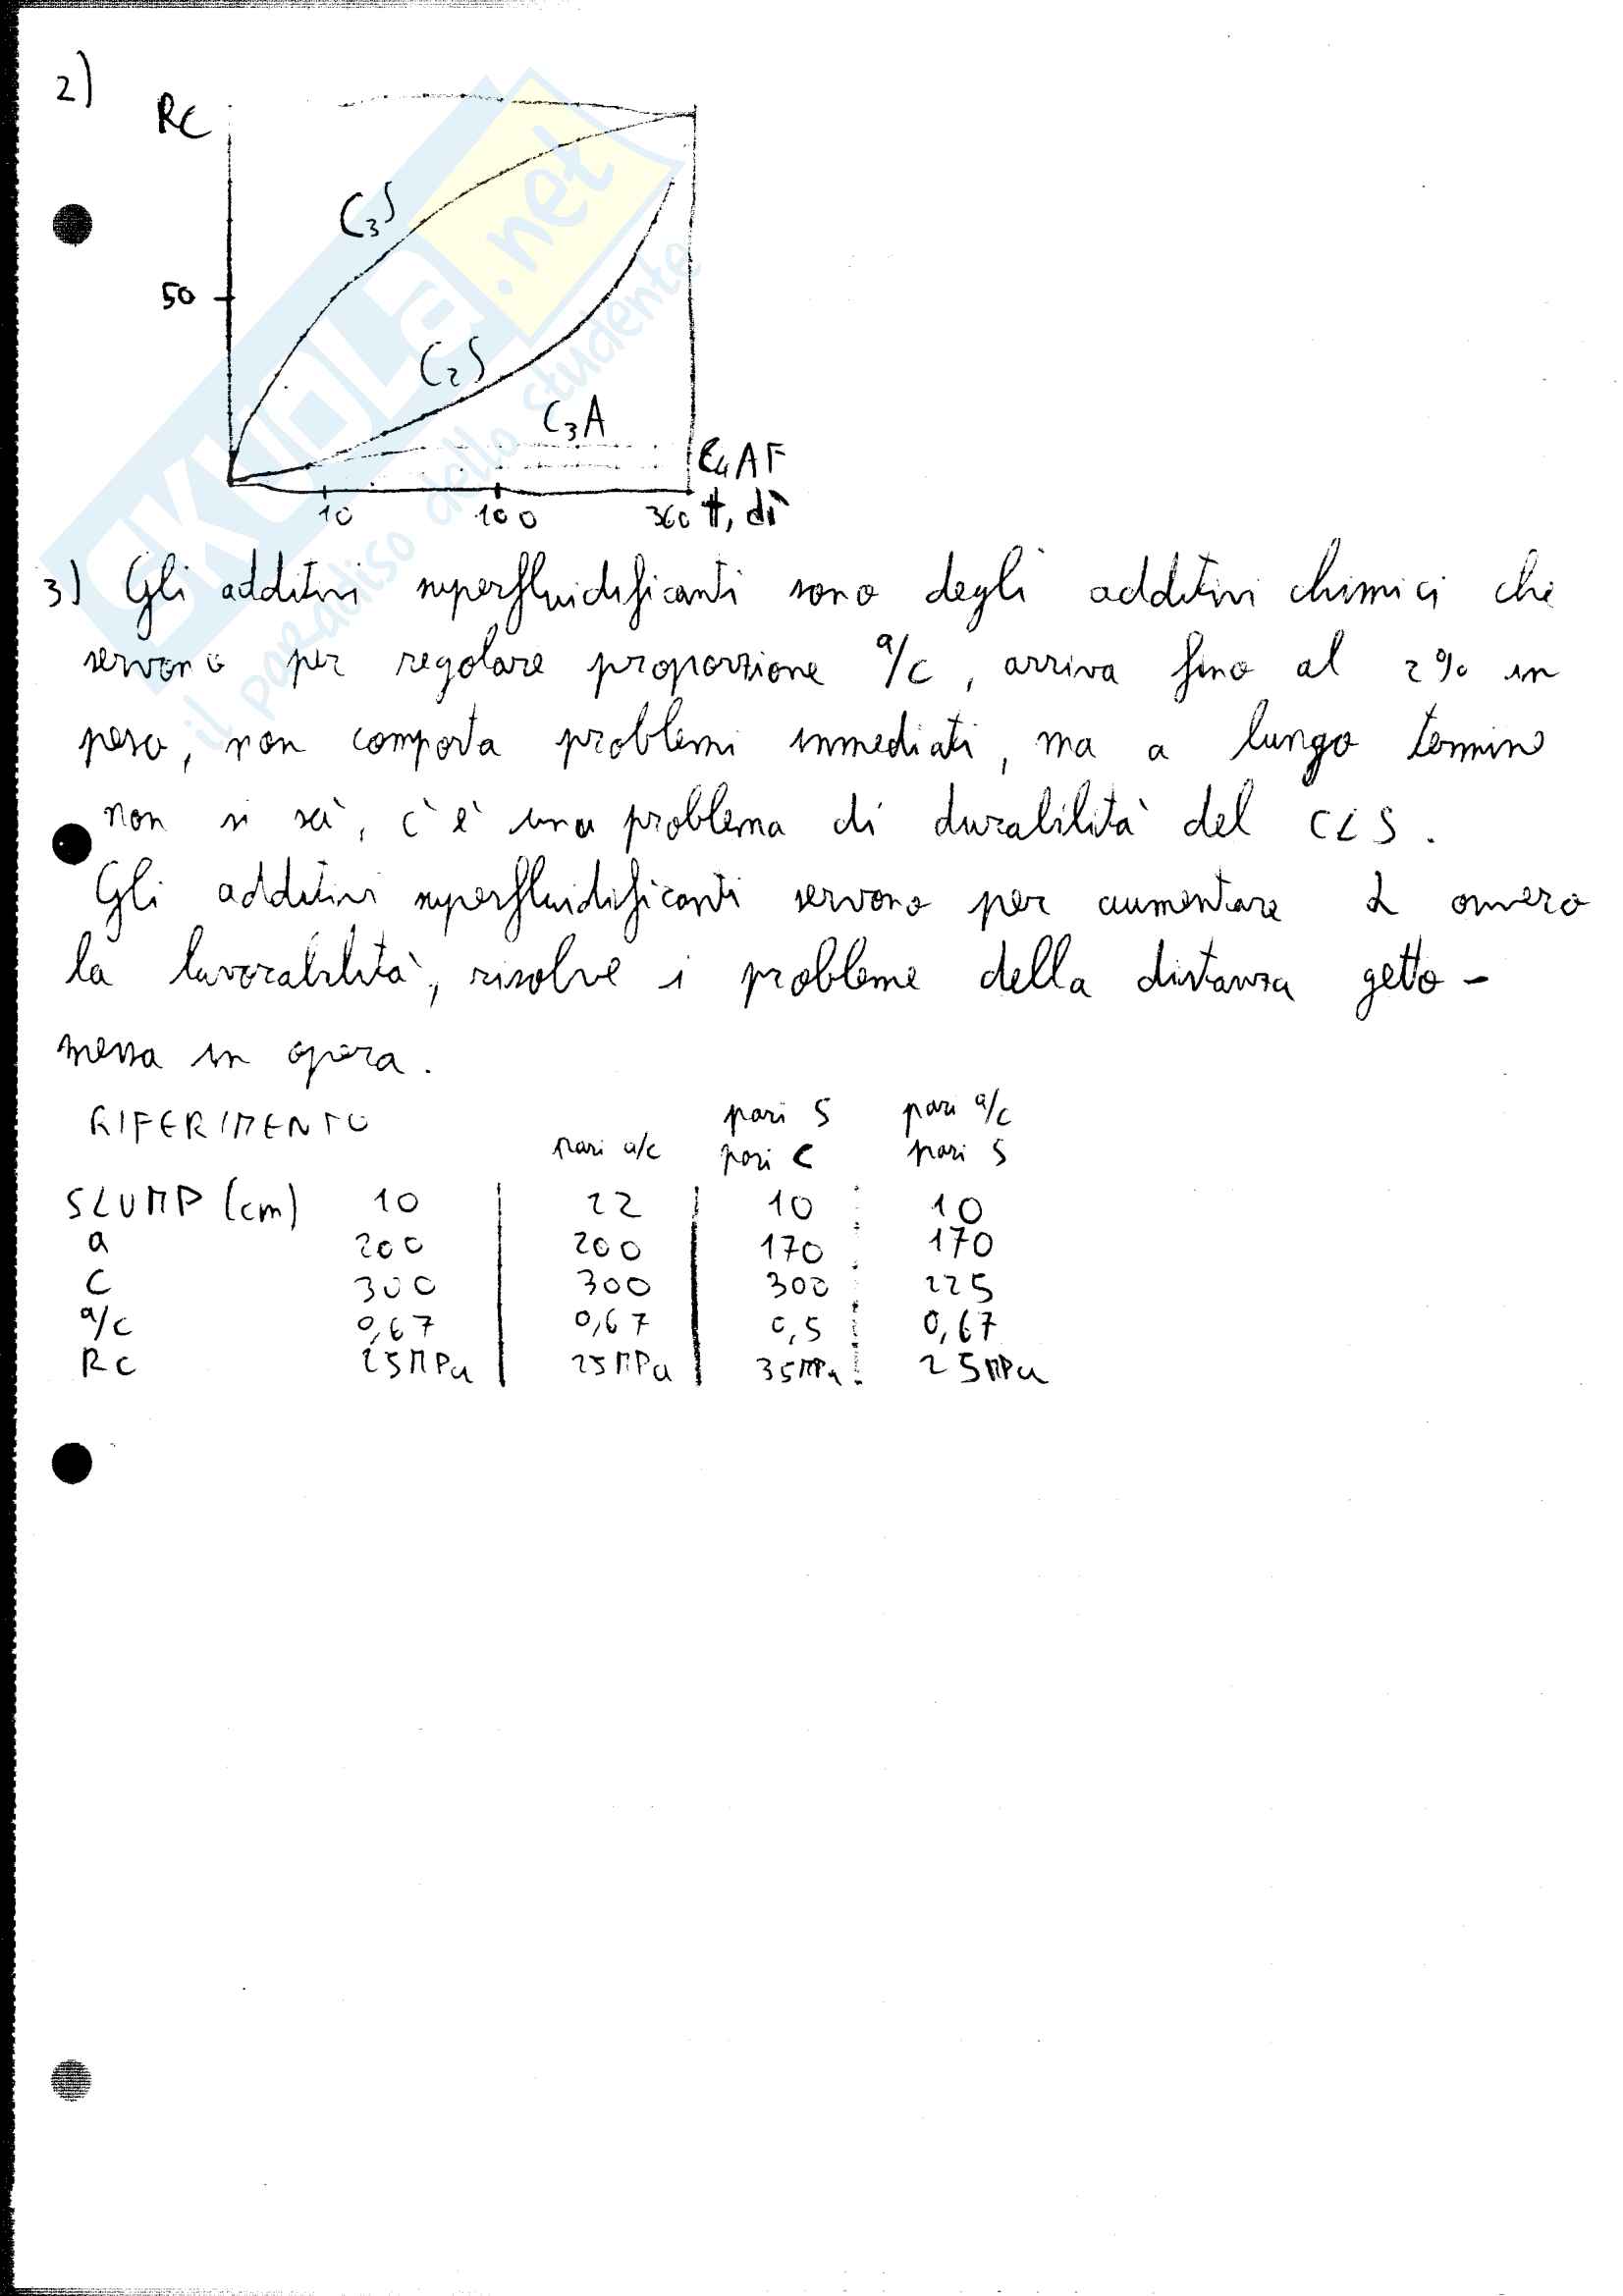 2)
Rc
C3S
50
C2S
C3A
C4AF
10 100 360 t, dì
3) Gli additivi superfluidificanti sono degli additivi chimici che
servono per regolare proporzione a/c, arriva fino al 2% in
peso, non comporta problemi immediati, ma a lungo termine
non si sà, c'è una problema di durabilità del CLS.
Gli additivi superfluidificanti servono per aumentare L ovvero
la lavorabilità, risolve i probleme della distanza getto-
messa in opera.
RIFERIMENTO pari a/c pari S pari C pari a/c pari S
SLUMP (cm) 10 22 10 10
a 200 200 170 170
C 300 300 300 225
a/c 0,67 0,67 0,5 0,67
Rc 25MPa 25MPa 35MPa 25MPa
SKUOLa.net
il paradiso dello studente